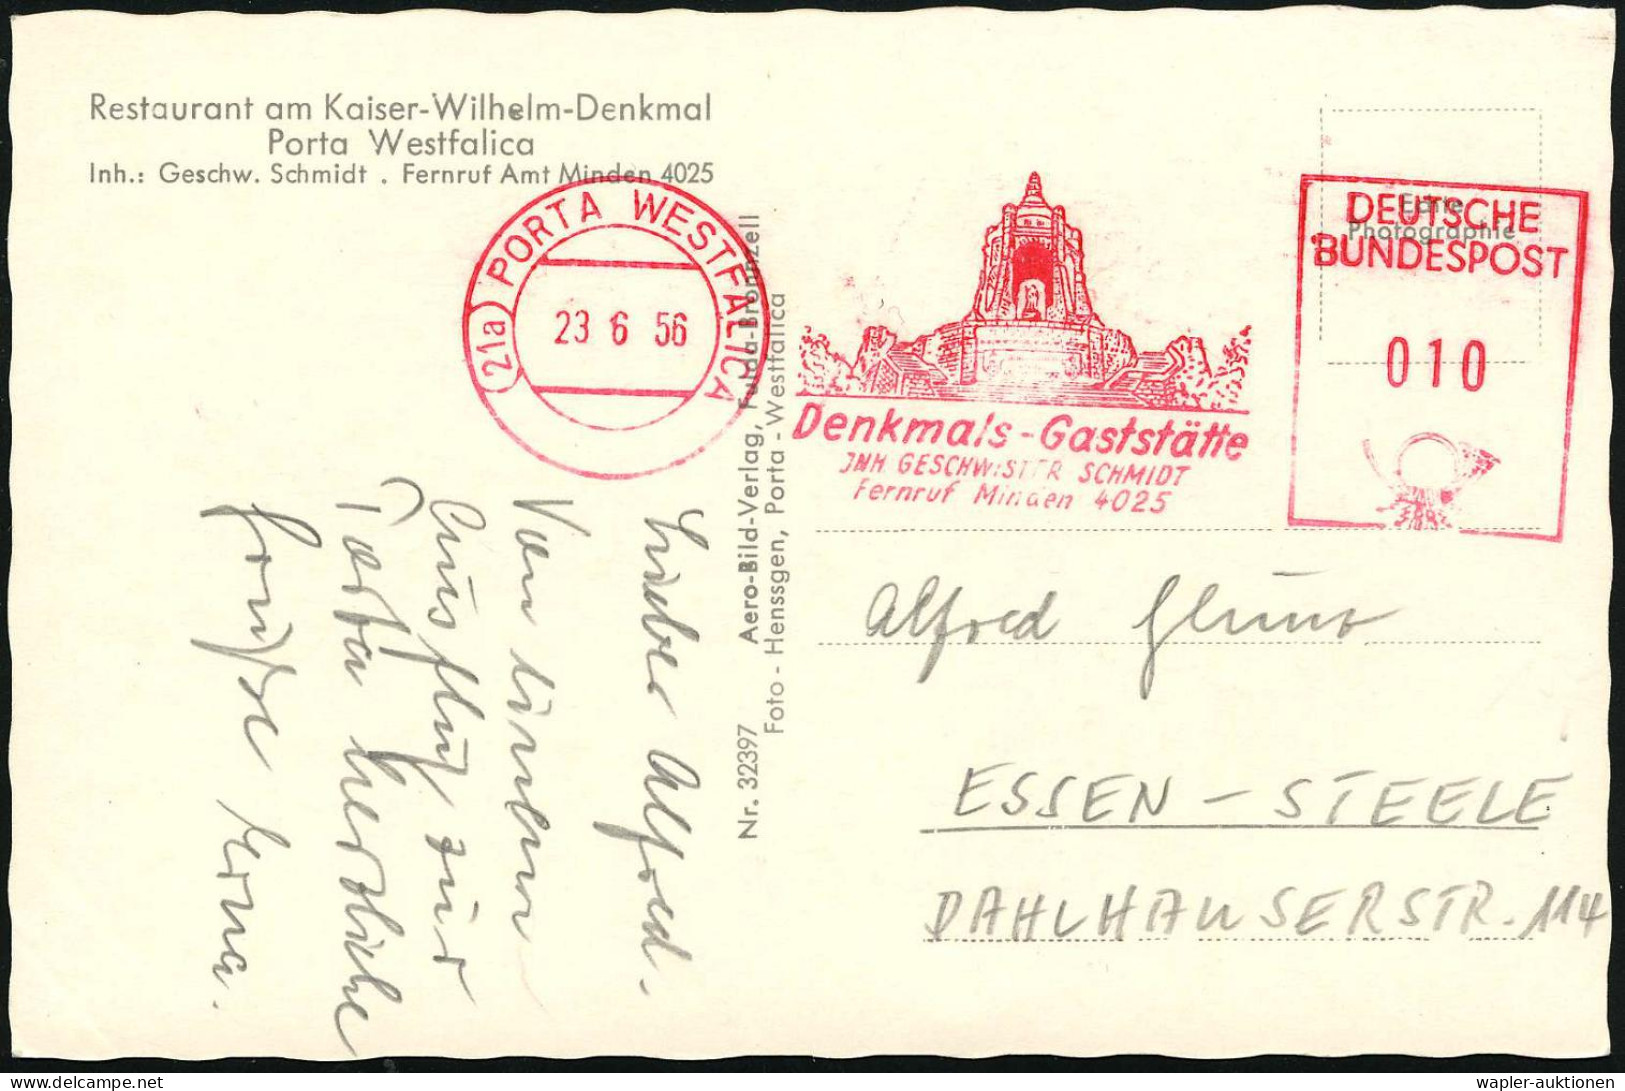 Restaurant am Kaiser-Wilhelm-Denkmal
Porta Westfalica
Inh.: Geschw. Schmidt . Fernruf Amt Minden 4025
(21a) PORTA WESTFALICA
23 6 56
Denkmals-Gaststätte
JNH GESCHWISTER SCHMIDT
Fernruf Minden 4025
Echte
Photographie
DEUTSCHE
BUNDESPOST
010
Nr. 32397 Aero-Bild-Verlag, Fulda-Bronnzell
Foto - Henssgen, Porta - Westfalica
Lieber Alfred.
Von
Ausflug zur
Porta herzliche
Grüße Erna.
Alfred
ESSEN - STEELE
DAHLHAUSERSTR. 114
delcampe.net
wapler-auktionen